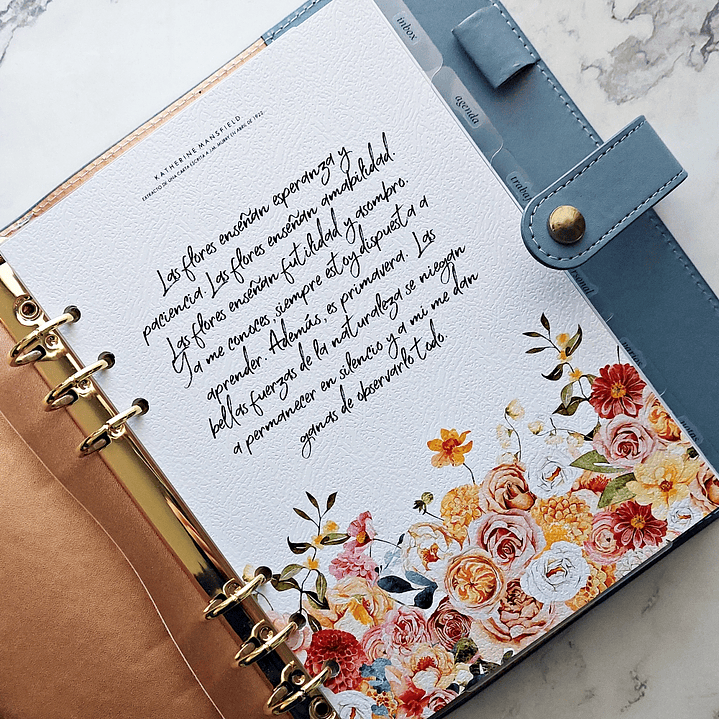 KATHERINE MANSFIELD
EXTRACTO DE UNA CARTA ESCRITA A J.M. MURRY EN ABRIL DE 1922.
Las flores enseñan esperanza y
paciencia. Las flores enseñan amabilidad.
Las flores enseñan futilidad y asombro.
Ya me conoces, siempre estoy dispuesta a
aprender. Además, es primavera. Las
bellas fuerzas de la naturaleza se niegan
a permanecer en silencio y a mi me dan
ganas de observarlo todo.
inbox
agenda
trabaj